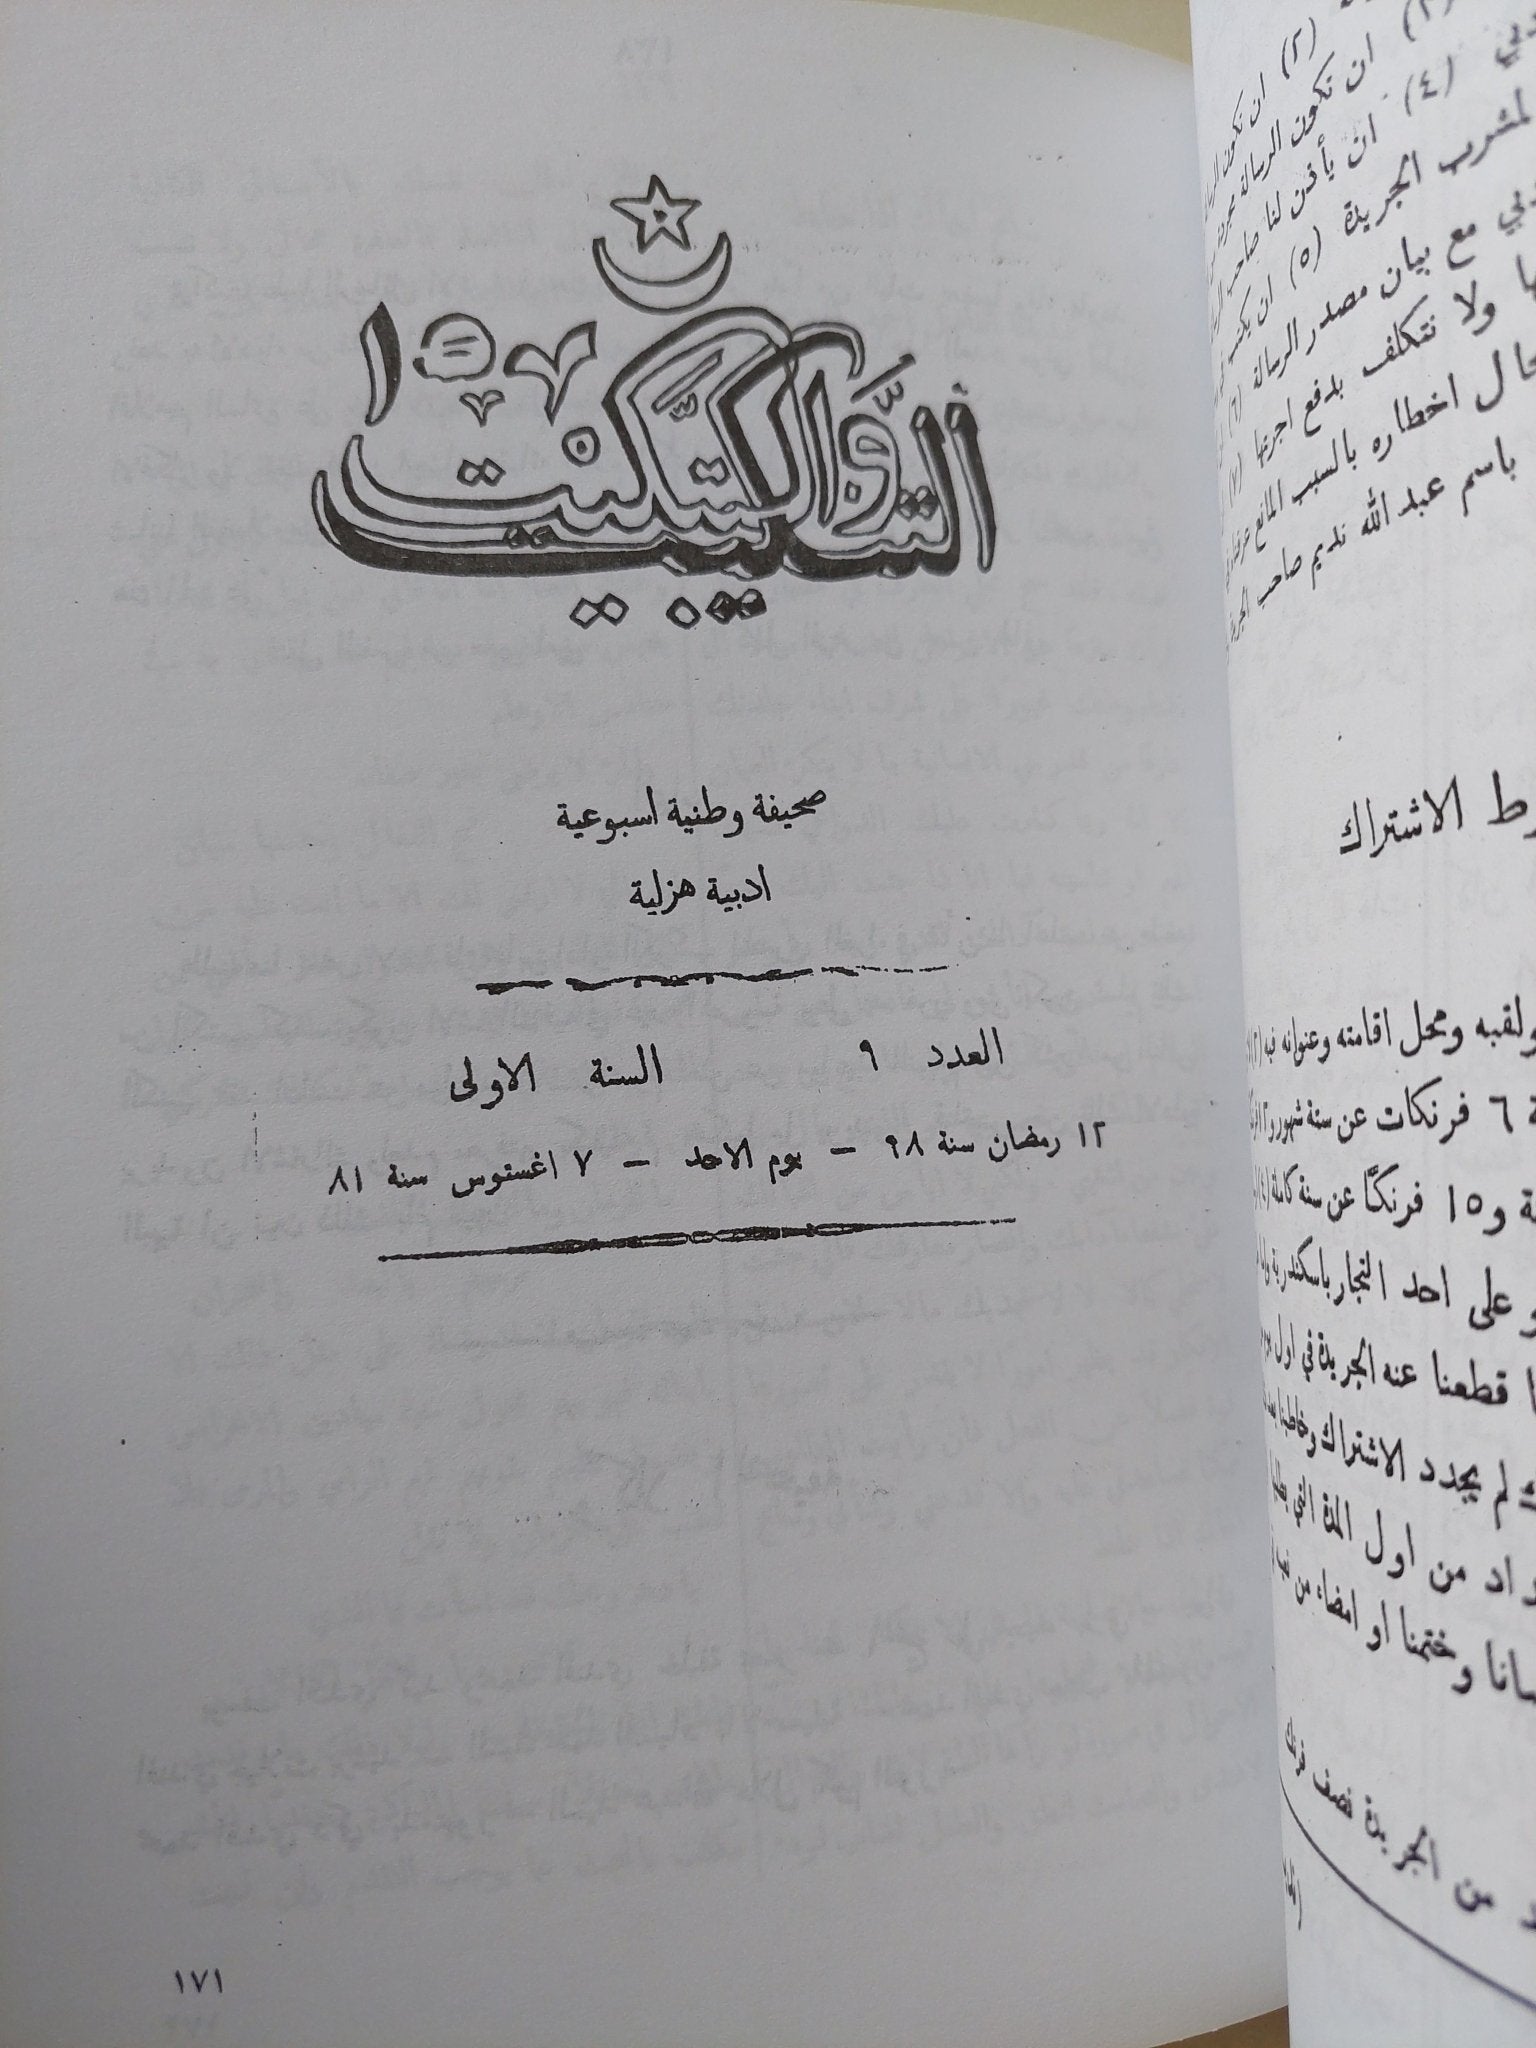 التنكيت والتبكيت
صحيفة وطنية اسبوعية
ادبية هزلية
العدد ٩ السنة الاولى
١٢ رمضان سنة ٩٨ – يوم الاحد – ٧ اغستوس سنة ٨١
١٧١
(٢) ان تكون
ان تكون الرسالة
(٤) ان يأذن لنا صاحب
لمشرب الجريدة (٥) ان يكتب
مع بيان مصدر الرسالة (٦)
ولا نتكلف بدفع اجرتها (٧)
اخطاره بالسبب المانع
باسم عبد الله نديم صاحب
الاشتراك
ولقبه ومحل اقامته وعنوانه فيه
٦ فرنكات عن ستة شهور و
و١٥ فرنكًا عن سنة كاملة
على احد التجار باسكندرية
قطعنا عنه الجريدة في اول
لم يجدد الاشتراك وخاطبنا
من اول المدة التي
وختمنا او امضاء من
من الجريدة نصف فرنك